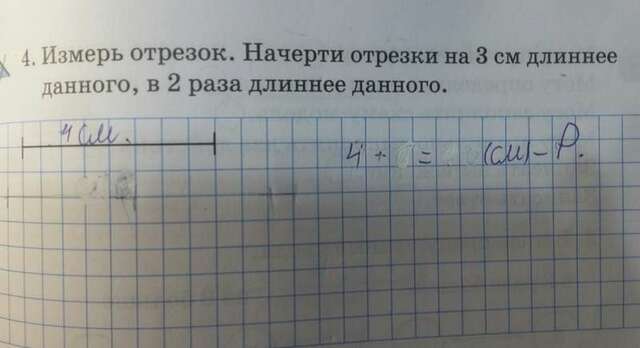 4. Измерь отрезок. Начерти отрезки на 3 см длиннее
данного, в 2 раза длиннее данного.
4 см.
4 + = (см) – Р.